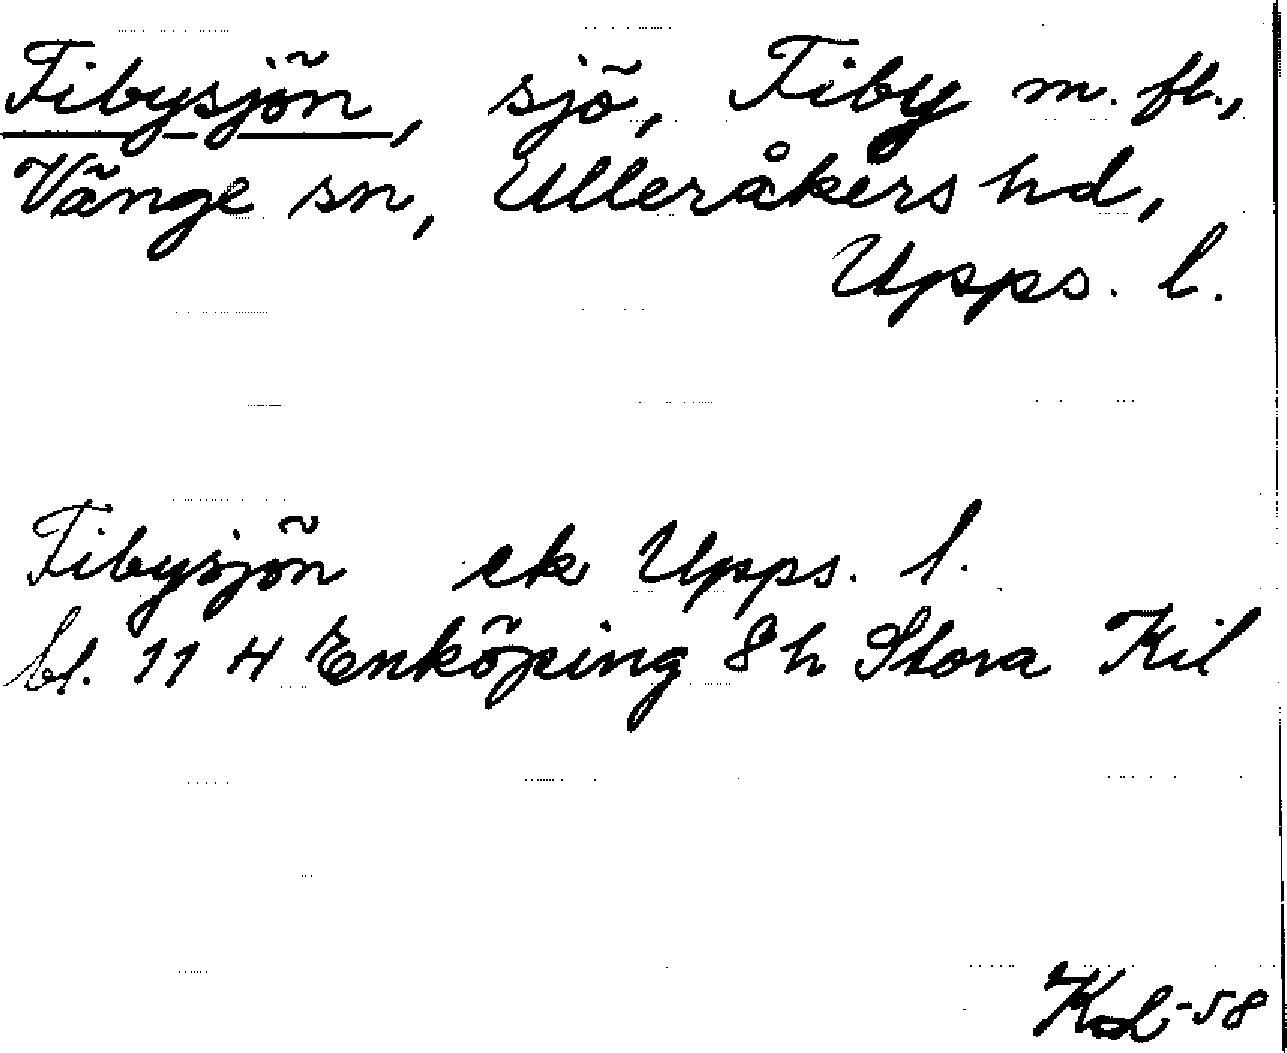 Fibysjön, sjö, Fiby m. fl.,
Vänge sn, Ulleråkers hd,
Upps. l.
Fibysjön ek Upps. l.
bl. 11 H Enköping 8 h Stora Kil
Kod -58